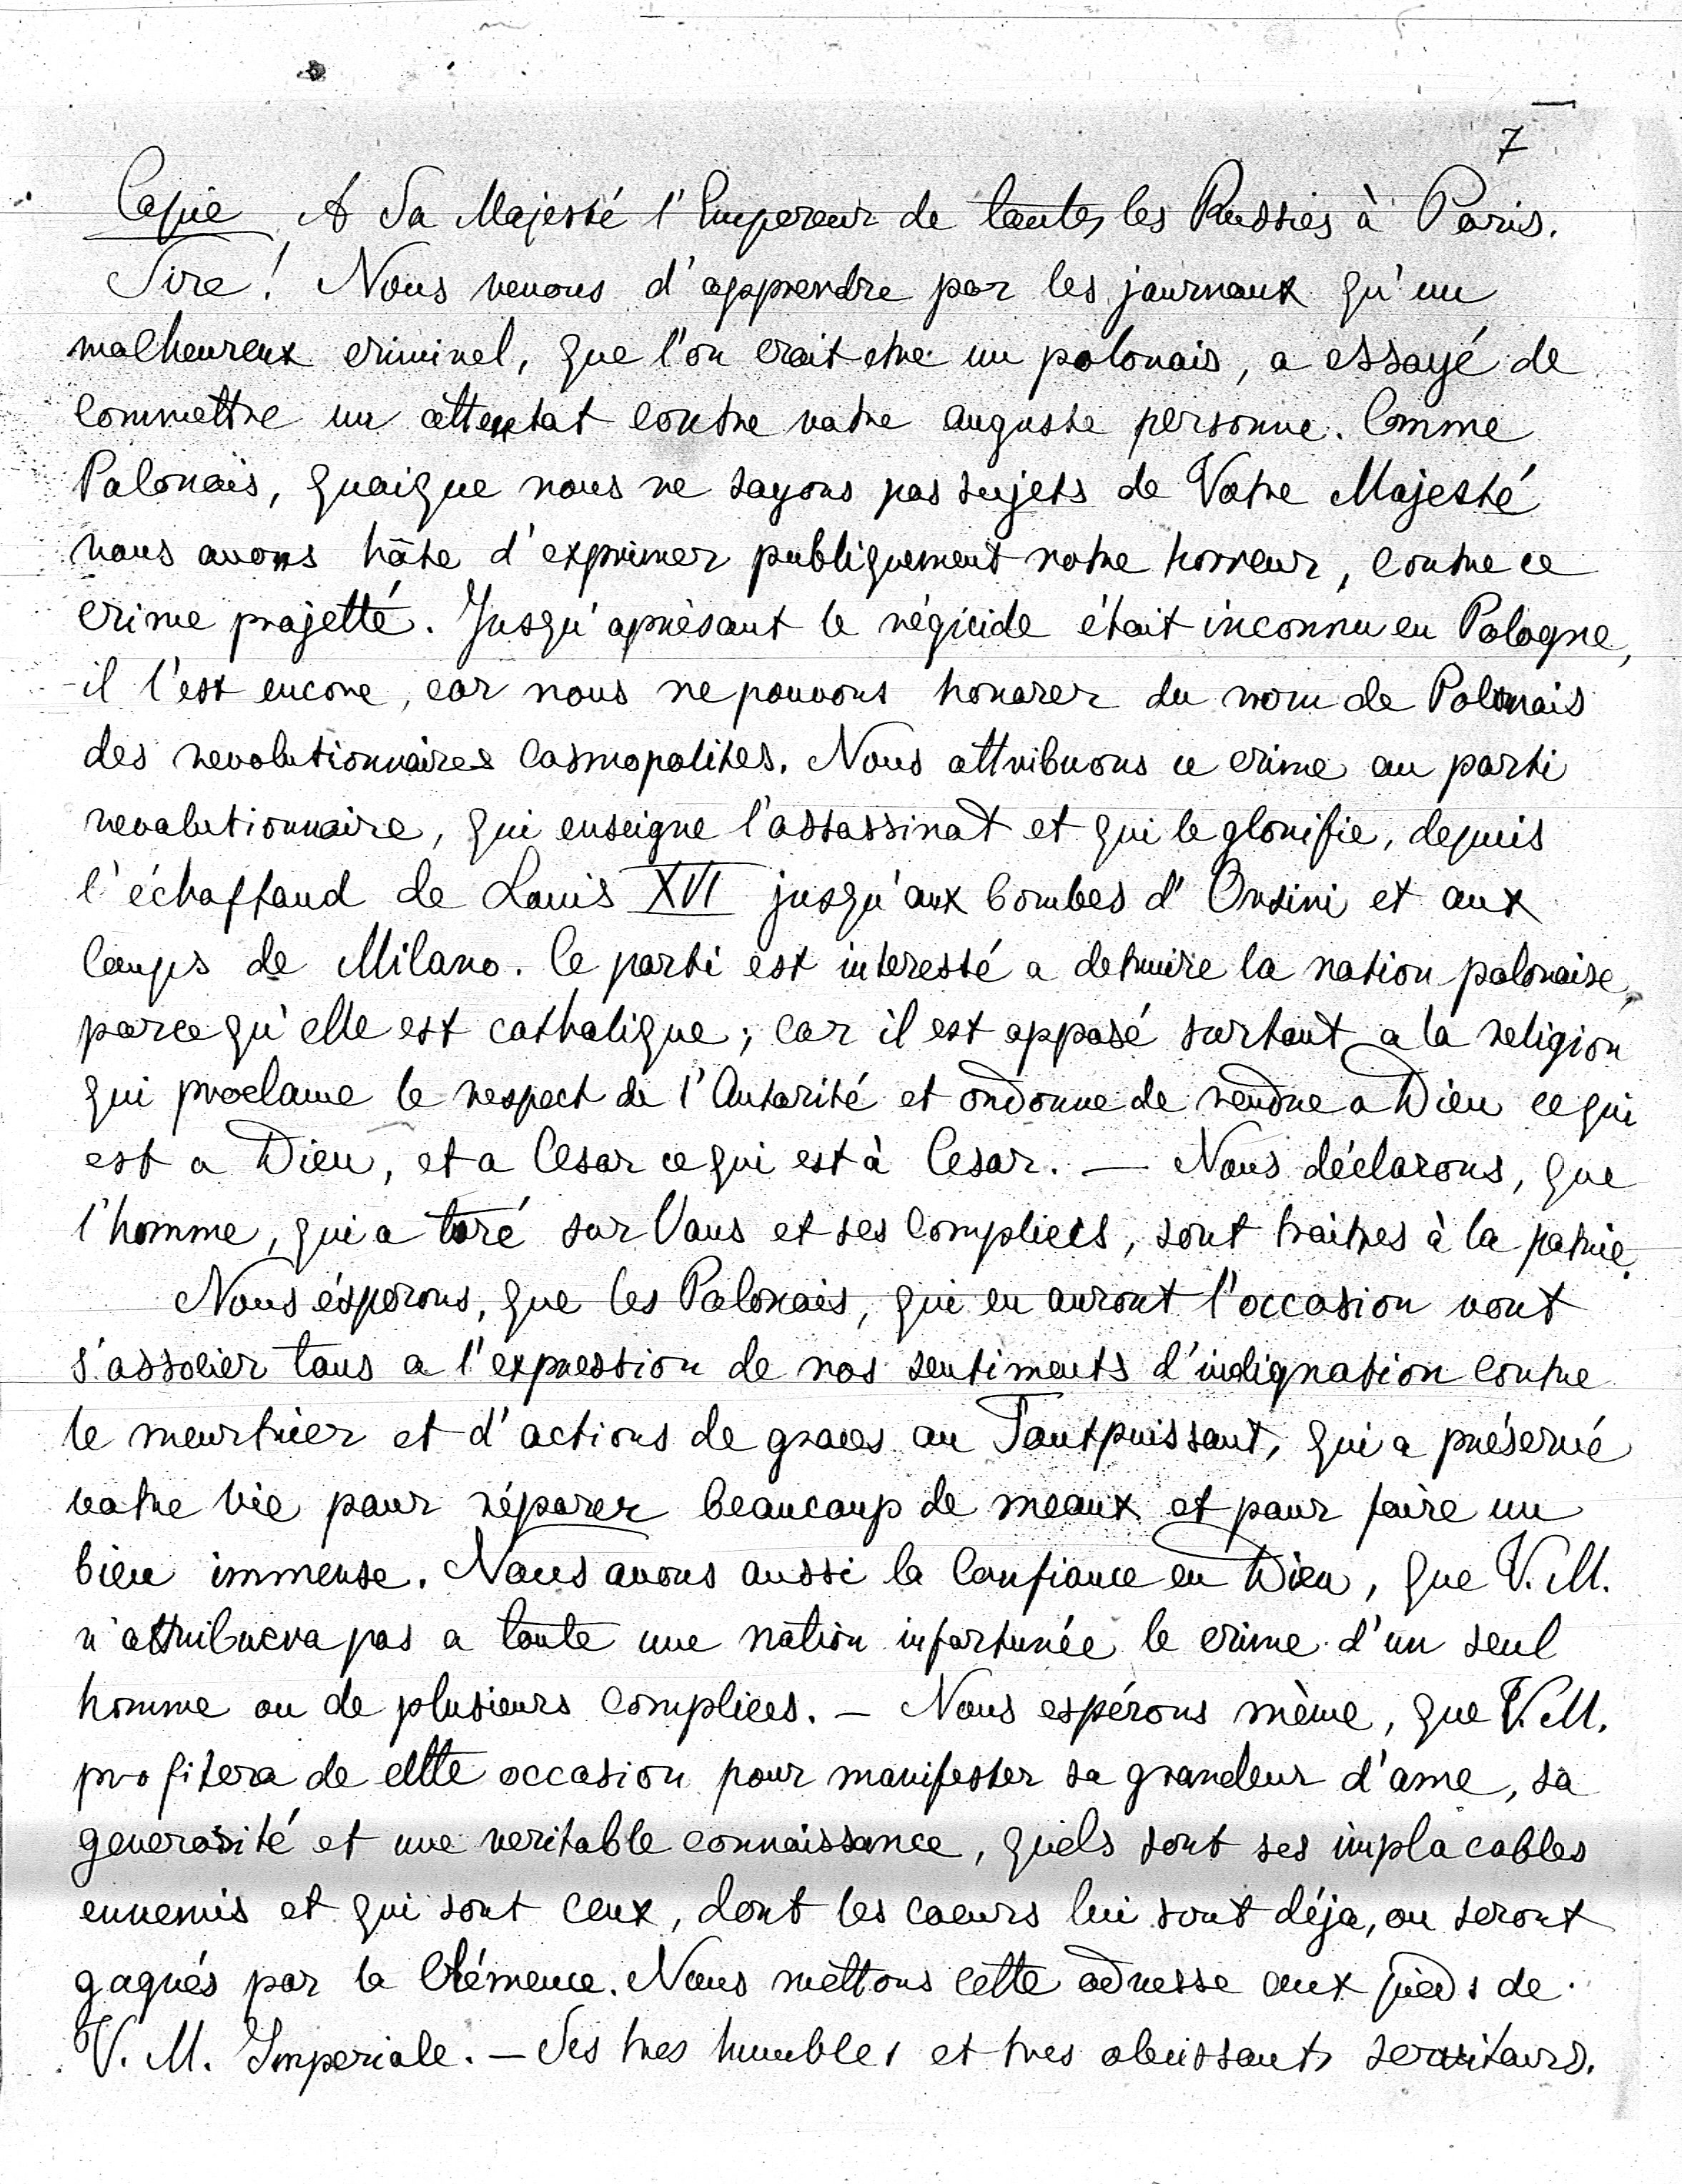 7
Copie A Sa Majesté l'Empereur de toutes les Russies à Paris.
Sire! Nous venons d'apprendre par les journaux qu'un
malheureux criminel, que l'on croit etre un polonais, a essayé de
commettre un attentat contre votre auguste personne. Comme
Polonais, quoique nous ne soyons pas sujets de Votre Majesté
nous avons hâte d'exprimer publiquement notre horreur, contre ce
crime projetté. Jusqu'aprèsant le régicide était inconnu en Pologne,
il l'est encore, car nous ne pouvons honorer du nom de Polonais
des revolutionnaires cosmopolites. Nous attribuons ce crime au parti
revolutionnaire, qui enseigne l'assassinat et qui le glorifie, depuis
l'échaffaud de Louis XVI jusqu'aux bombes d'Orsini et aux
coups de Milano. Ce parti est interessé a detruire la nation polonaise,
parce qu'elle est catholique; car il est opposé surtout a la religion
qui proclame le respect de l'Autorité et ordonne de rendre a Dieu ce qui
est a Dieu, et a Cesar ce qui est à Cesar. — Nous déclarons, que
l'homme, qui a tiré sur Vous et ses complices, sont traitres à la patrie.
Nous ésperons, que les Polonais, qui en auront l'occasion vont
s'associer tous a l'expression de nos sentiments d'indignation contre
le meurtrier et d'actions de graces au Toutpuissant, qui a préservé
votre vie pour réparer beaucoup de meaux et pour faire un
bien immense. Nous avons aussi la confiance en Dieu, que V. M.
n'attribuera pas a toute une nation infortunée le crime d'un seul
homme ou de plusieurs complices. — Nous espérons même, que V. M.
profitera de cette occasion pour manifester sa grandeur d'ame, sa
generosité et une veritable connaissance, quels sont ses implacables
ennemis et qui sont ceux, dont les coeurs lui sont déja, ou seront
gagnés par la Clémence. Nous mettons cette adresse aux pieds de
V. M. Imperiale. — Ses tres humbles et tres obeissants serviteurs.